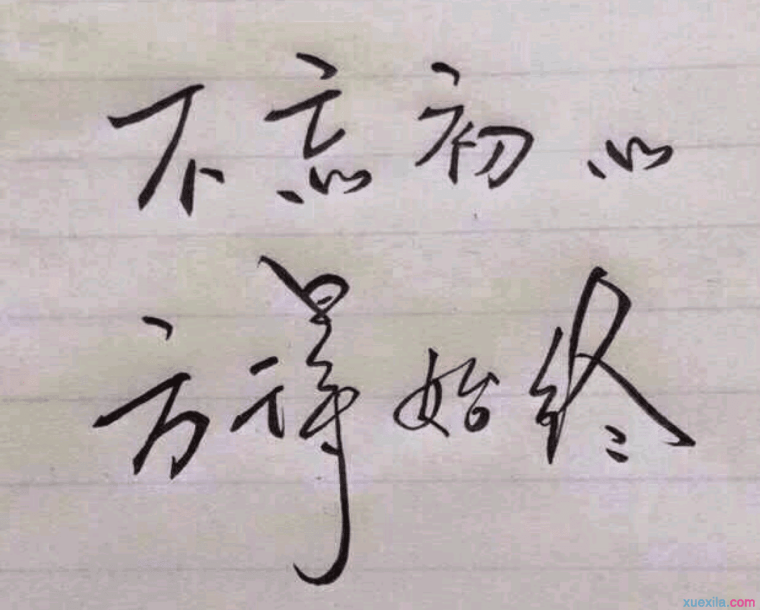 不忘初心
方得始终
xuexila.com